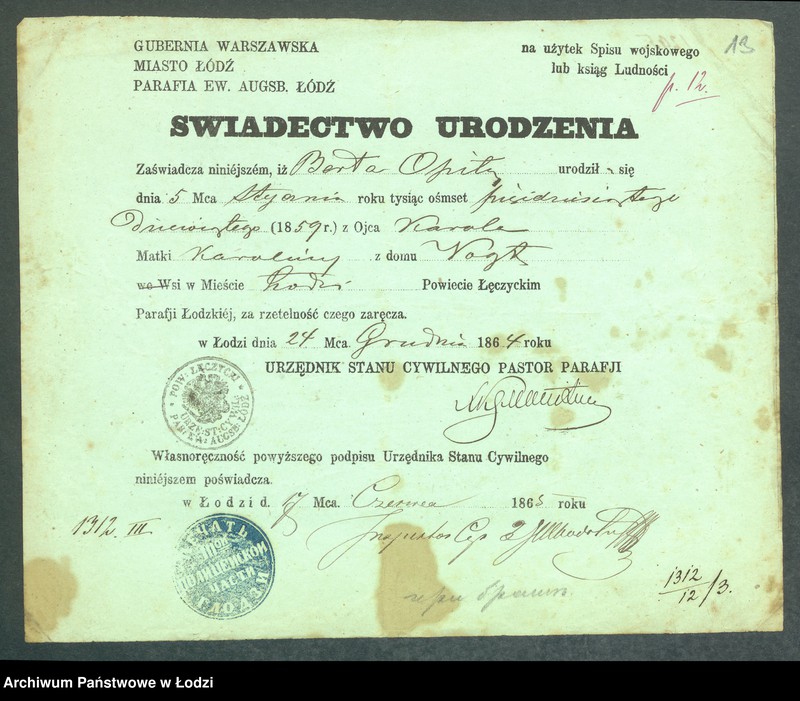 GUBERNIA WARSZAWSKA
MIASTO ŁÓDŹ
PARAFIA EW. AUGSB. ŁÓDŹ
na użytek Spisu wojskowego
lub ksiąg Ludności
13
p. 12.
SWIADECTWO URODZENIA
Zaświadcza niniéjszém, iż Berta Opitz urodził się
dnia 5 Mca Stycznia roku tysiąc ośmset pięćdziesiątego
Dziewiątego (1859 r.) z Ojca Karola
Matki Karoliny z domu Vogt
we Wsi w Mieście Łodzi Powiecie Łęczyckim
Parafji Łodzkiéj, za rzetelność czego zaręcza.
w Łodzi dnia 24 Mca Grudnia 1864 roku
URZĘDNIK STANU CYWILNEGO PASTOR PARAFJI
POW. ŁĘCZYCKI
URZ. ST. CYWIL.
PAR. EW. AUGSB. ŁÓDŹ
Własnoręczność powyższego podpisu Urzędnika Stanu Cywilnego
niniéjszem poświadcza.
w Łodzi d. 17 Mca. Czerwca 1865 roku
1312 III
1312/12 /3.
Archiwum Państwowe w Łodzi